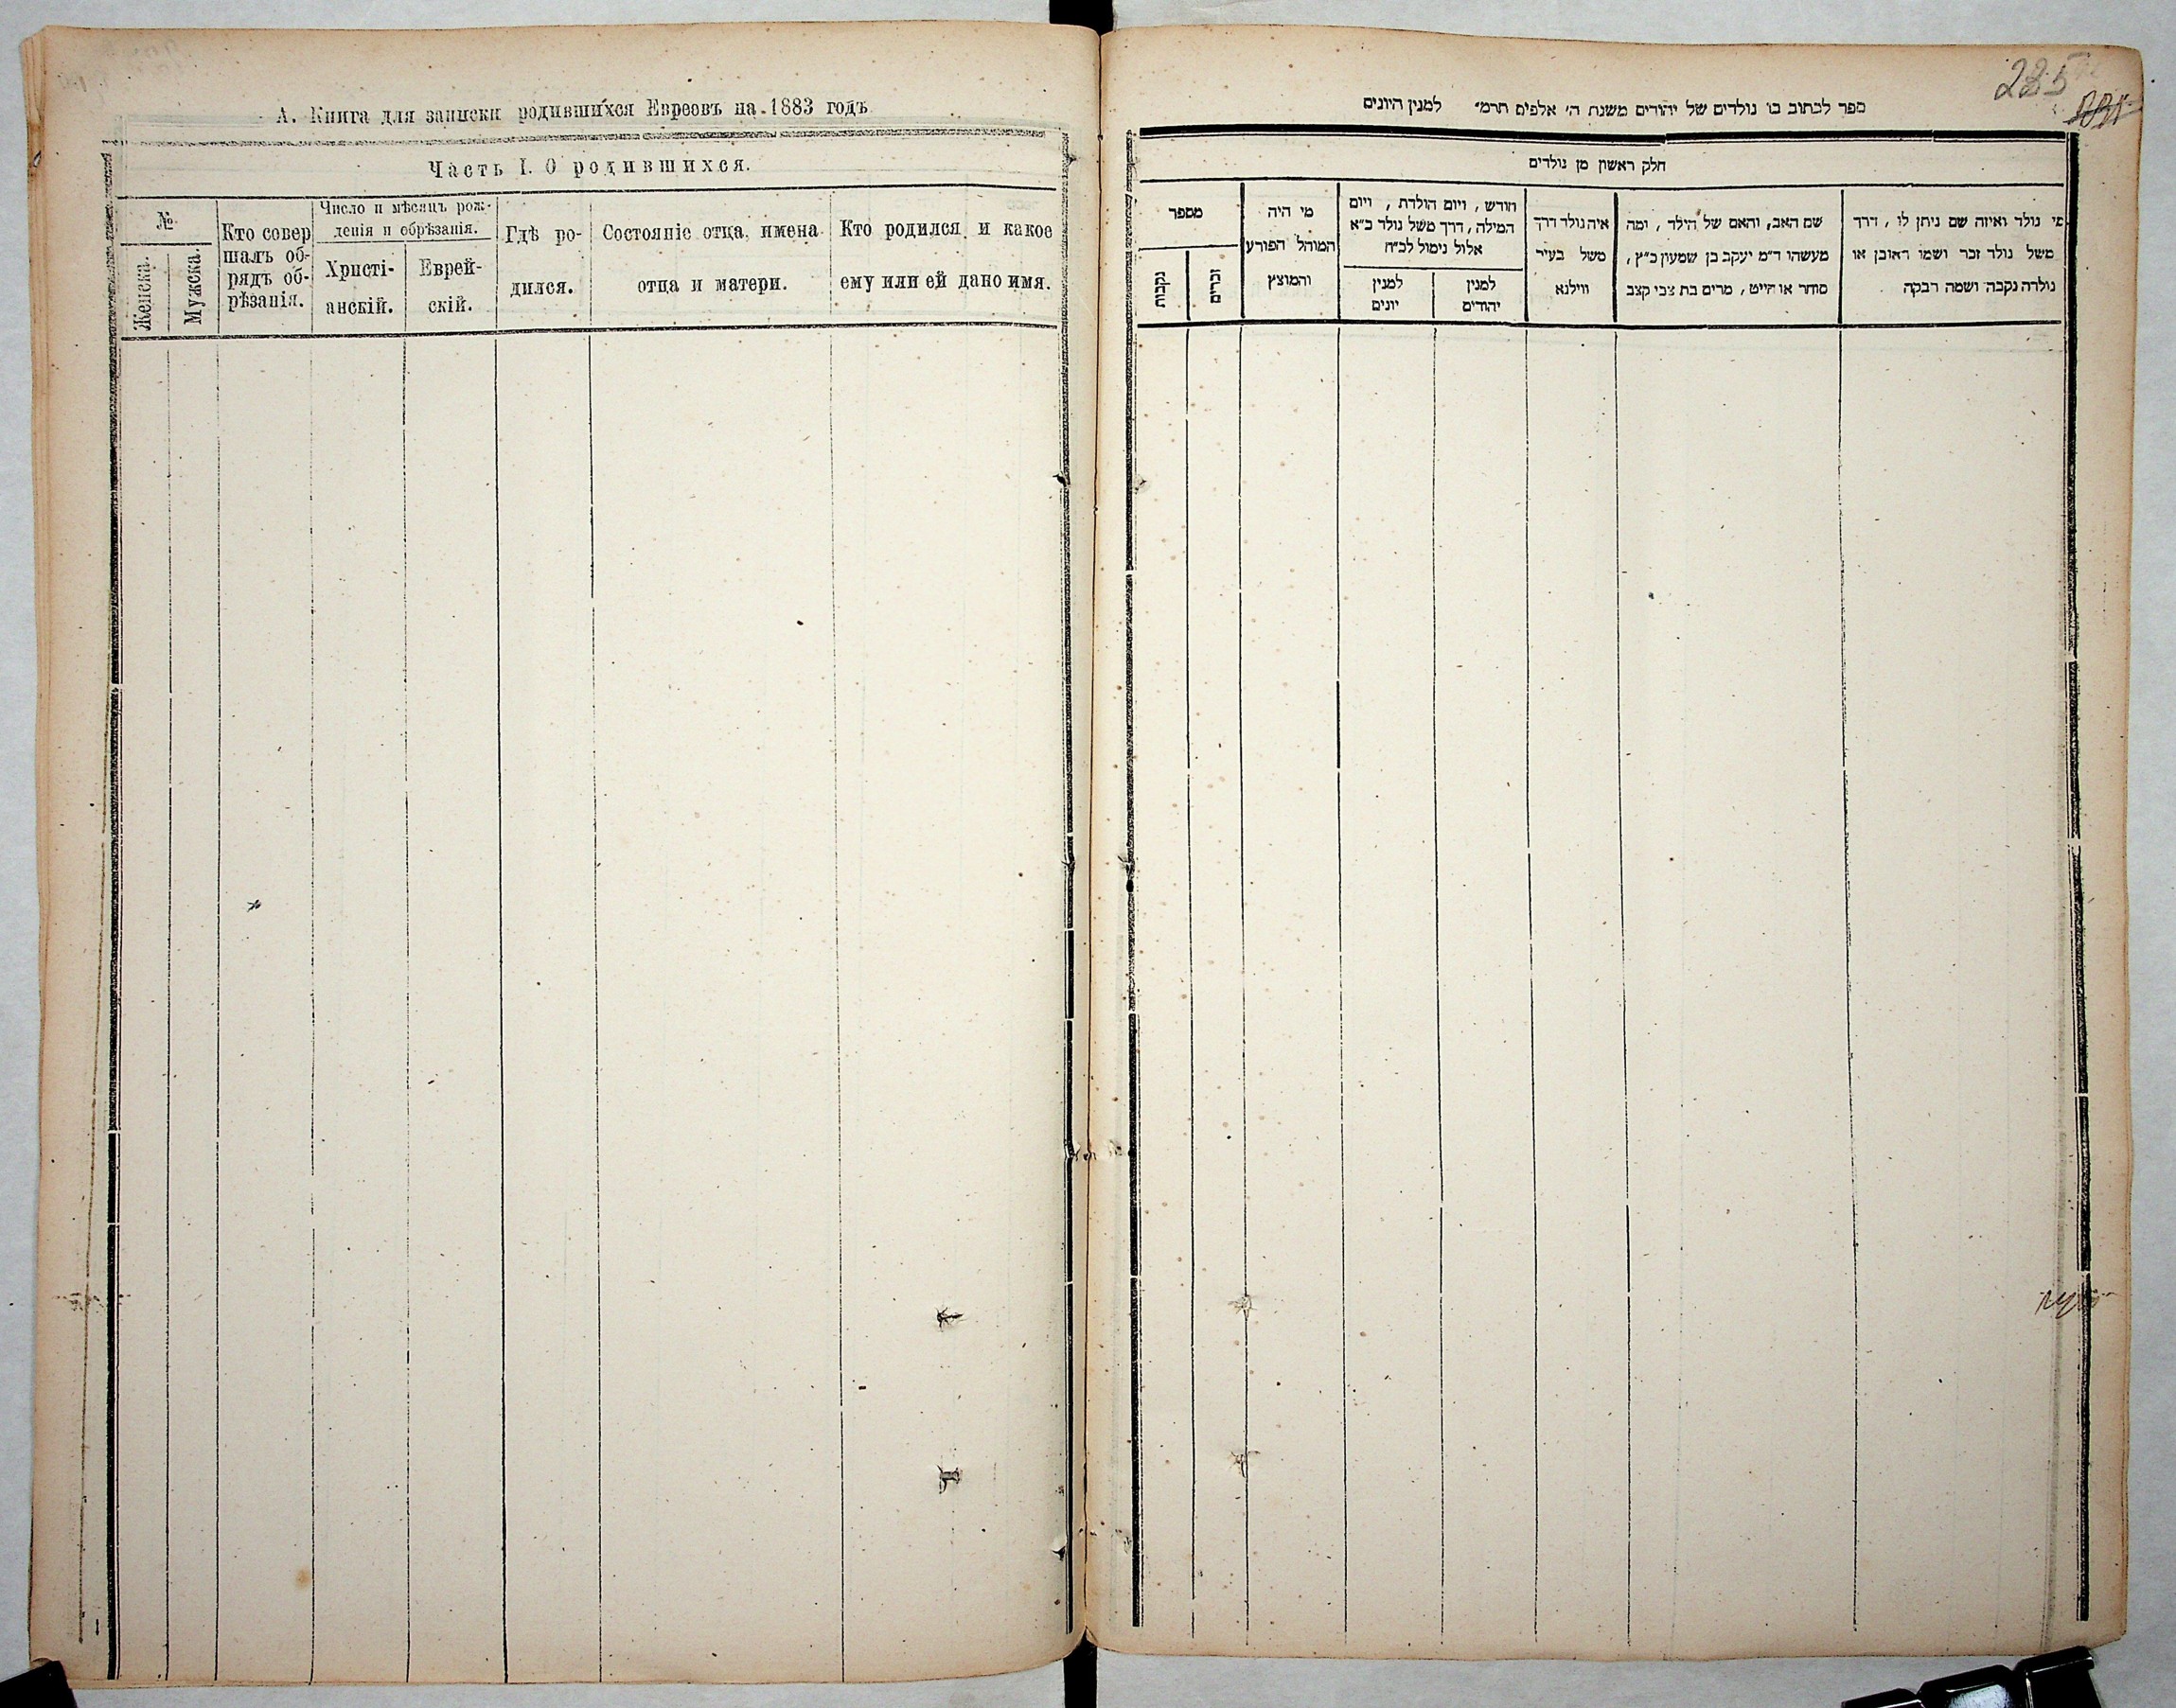 А. Книга для записки родившихся Евреовъ на 1883 годъ
Часть I. О родившихся.
№
Женска.
Мужска.
Кто совер
шалъ об-
рядъ об-
рѣзанія.
Число и мѣсяцъ рож-
денія и обрѣзанія.
Христі-
анскій.
Еврей-
скій.
Гдѣ ро-
дился.
Состояніе отца, имена
отца и матери.
Кто родился и какое
ему или ей дано имя.
235
ספר לכתוב בו נולדים של יהודים משנת ה׳ אלפים תרמ״ למנין היונים
חלק ראשון מן נולדים
מספר
נקבות
זכרים
מי היה
המוהל הפורע
והמוצץ
חודש, ויום הולדת, ויום
המילה, דרך משל נולד כ״א
אלול נימול לכ״ח
למנין
יונים
למנין
יהודים
איה נולד דרך
משל בעיר
ווילנא
שם האב, והאם של הילד, ומה
מעשהו ד״מ יעקב בן שמעון כ״ץ,
סוחר או חייט, מרים בת צבי קצב
מי נולד ואיזה שם ניתן לו, דרך
משל נולד זכר ושמו ראובן או
נולדה נקבה ושמה רבקה